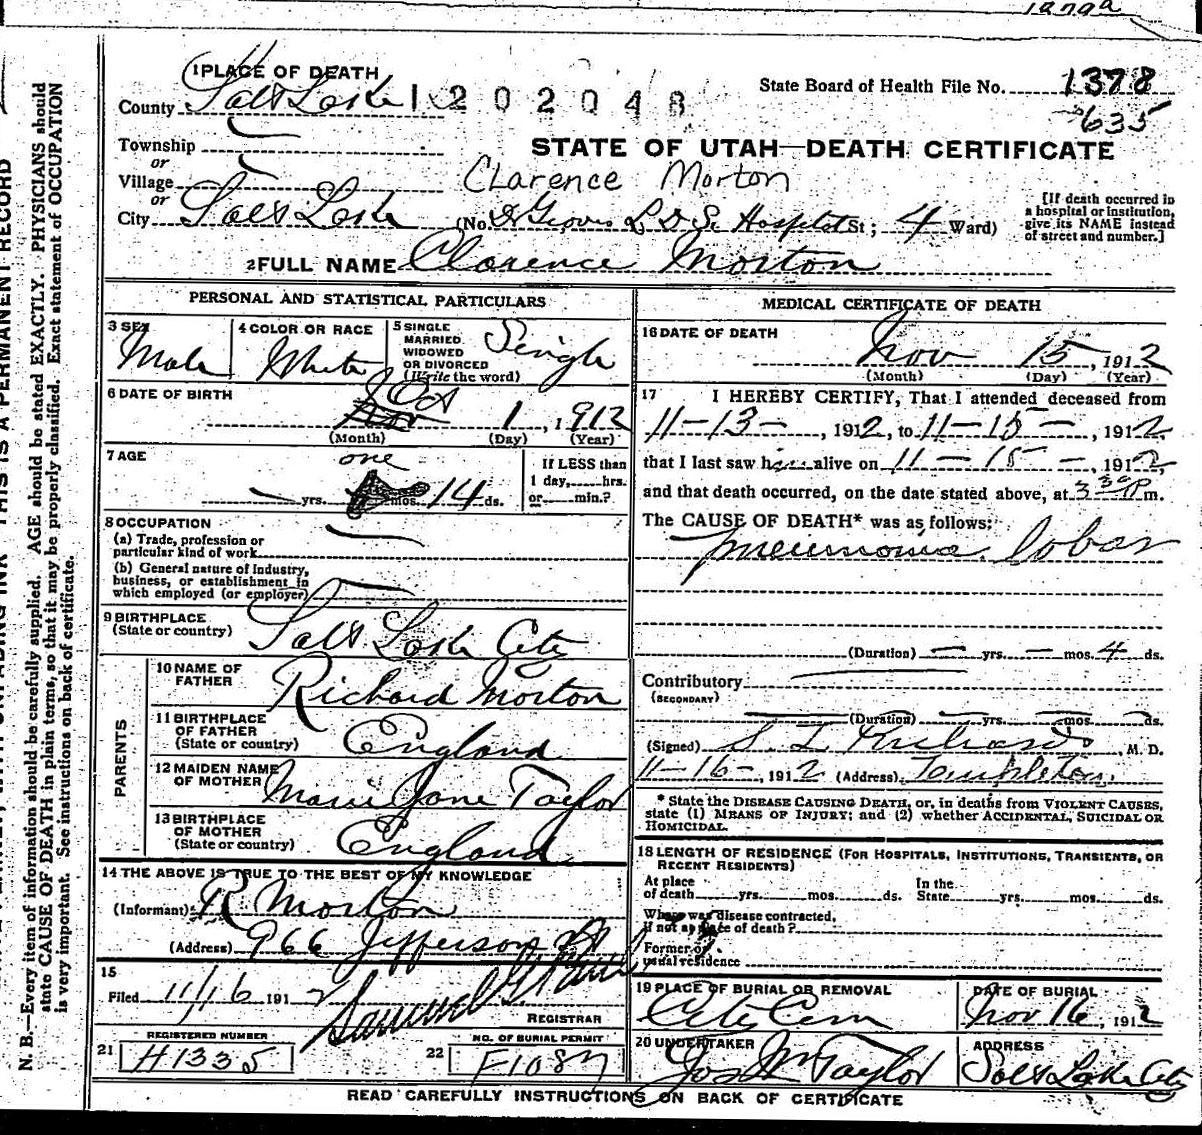 1 PLACE OF DEATH
County Salt Lake
1 2 0 2 0 4 8
State Board of Health File No. 1378
635
Township
or
Village
or
City Salt Lake
STATE OF UTAH—DEATH CERTIFICATE
Clarence Morton
(No. L D S Hospital St; 4 Ward)
[If death occurred in
a hospital or institution,
give its NAME instead
of street and number.]
2 FULL NAME Clarence Morton
PERSONAL AND STATISTICAL PARTICULARS
3 SEX
Male
4 COLOR OR RACE
White
5 SINGLE
MARRIED
WIDOWED
OR DIVORCED
(Write the word)
Single
6 DATE OF BIRTH
Oct 1, 1912
(Month) (Day) (Year)
7 AGE
one
yrs. mos. 14 ds.
If LESS than
1 day, hrs.
or min.?
8 OCCUPATION
(a) Trade, profession or
particular kind of work
(b) General nature of Industry,
business, or establishment in
which employed (or employer)
9 BIRTHPLACE
(State or country)
Salt Lake City
PARENTS
10 NAME OF
FATHER
Richard Morton
11 BIRTHPLACE
OF FATHER
(State or country)
England
12 MAIDEN NAME
OF MOTHER
Marie Jane Taylor
13 BIRTHPLACE
OF MOTHER
(State or country)
England
14 THE ABOVE IS TRUE TO THE BEST OF MY KNOWLEDGE
(Informant) R Morton
(Address) 966 Jefferson St
15
Filed 11/16 1912
Samuel G.
REGISTRAR
REGISTERED NUMBER
21 H1335
NO. OF BURIAL PERMIT
22 F1087
MEDICAL CERTIFICATE OF DEATH
16 DATE OF DEATH
Nov 15, 1912
(Month) (Day) (Year)
17 I HEREBY CERTIFY, That I attended deceased from
11-13-, 1912, to 11-15-, 1912,
that I last saw him alive on 11-15-, 1912,
and that death occurred, on the date stated above, at 3 30 P m.
The CAUSE OF DEATH* was as follows:
pneumonia lobar
(Duration) — yrs. — mos. 4 ds.
Contributory
(SECONDARY)
(Duration) — yrs. — mos. — ds.
(Signed) S. L. Richards, M. D.
11-16-, 1912 (Address) Templeton.
* State the DISEASE CAUSING DEATH, or, in deaths from VIOLENT CAUSES,
state (1) MEANS OF INJURY; and (2) whether ACCIDENTAL, SUICIDAL OR
HOMICIDAL.
18 LENGTH OF RESIDENCE (FOR HOSPITALS, INSTITUTIONS, TRANSIENTS, OR
RECENT RESIDENTS)
At place
of death yrs. mos. ds.
In the
State yrs. mos. ds.
Where was disease contracted,
if not at place of death?
Former or
usual residence
19 PLACE OF BURIAL OR REMOVAL
City Cem
DATE OF BURIAL
Nov 16, 1912
20 UNDERTAKER
Jos Wm Taylor
ADDRESS
Salt Lake City
READ CAREFULLY INSTRUCTIONS ON BACK OF CERTIFICATE
THIS IS A PERMANENT RECORD
N. B.—Every item of information should be carefully supplied. AGE should be stated EXACTLY. PHYSICIANS should
state CAUSE OF DEATH in plain terms, so that it may be properly classified. Exact statement of OCCUPATION
is very important. See instructions on back of certificate.